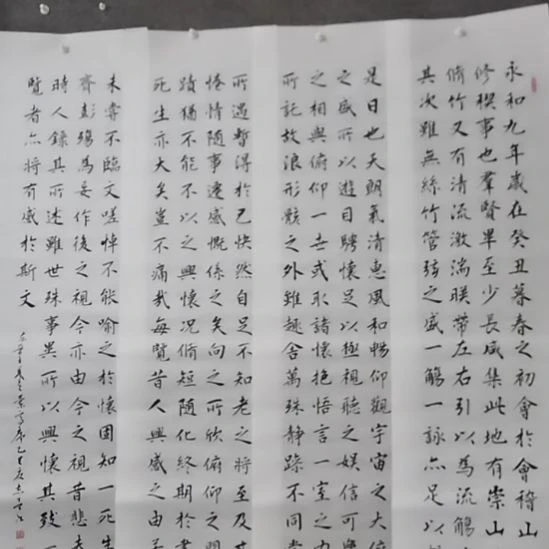 永和九年歲在癸丑暮春之初會於會稽山
修稧事也羣賢畢至少長咸集此地有崇山
脩竹又有清流激湍暎帶左右引以為流觴
其次雖無絲竹管弦之盛一觴一詠亦足以
是日也天朗氣清惠風和暢仰觀宇宙之大俯
之盛所以遊目騁懷足以極視聽之娛信可樂
之相與俯仰一世或取諸懷抱悟言一室之
所託放浪形骸之外雖趣舍萬殊静躁不同
所遇暫得於己快然自足不知老之將至及其
惓情隨事遷感慨係之矣向之所欣俯仰之
蹟猶不能不以之興懷況脩短隨化終期於
死生亦大矣豈不痛哉每覽昔人興感之由
未嘗不臨文嗟悼不能喻之於懷固知一死生
齊彭殤為妄作後之視今亦由今之視昔悲夫
時人錄其所述雖世殊事異所以興懷其致一
覽者亦將有感於斯文